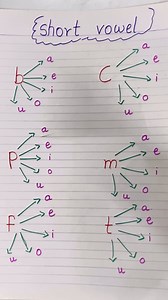 {short vowel}
b a e i o u
C a e i o u
P a e i o u
m a e i o u
f a e i o u
t a e i o u